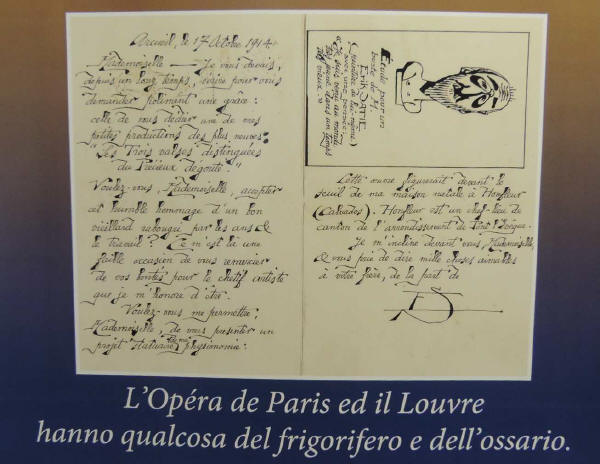 Arcueil, le 17 Octobre 1914
Mademoiselle — Je vous devais,
depuis un long temps, écrire pour vous
demander poliment une grâce:
celle de vous dédier une de mes
petites productions des plus neuves:
"Les Trois valses distinguées
du Précieux dégoûté."
Voulez-vous, Mademoiselle, accepter
cet humble hommage d'un bon
vieillard rabougri par les ans &
le travail? Ce m'est là une
faible occasion de vous remercier
de vos bontés pour le chétif artiste
que je m'honore d'être.
Voulez-vous me permettre,
Mademoiselle, de vous présenter un
projet statuaire de ma physionomie:
Étude pour un
buste de M.
Erik SATIE
avec une pensée:
"Je suis venu au monde
très jeune dans un temps
très vieux."
Cette œuvre figurerait devant le
seuil de ma maison natale à Honfleur
(Calvados). Honfleur est un chef-lieu de
canton de l'arrondissement de Pont-l'Évêque.
Je m'incline devant vous, Mademoiselle,
& vous prie de dire mille choses aimables
à votre frère, de la part de
ES
L'Opéra de Paris ed il Louvre
hanno qualcosa del frigorifero e dell'ossario.